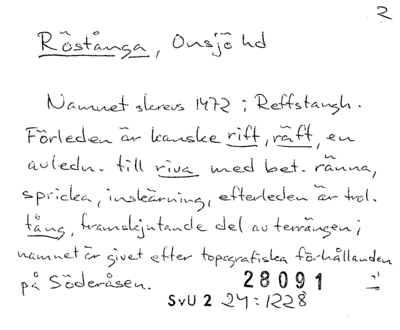 2
Röstånga, Onsjö hd
Namnet skrevs 1472 i Reffstangh.
Förleden är kanske rift, räft, en
avledn. till riva med bet. ränna,
spricka, inskärning, efterleden är trol.
tång, framskjutande del av terrängen;
namnet är givet efter topografiska förhållanden
på Söderåsen.
28091
SvU 2 24:1228